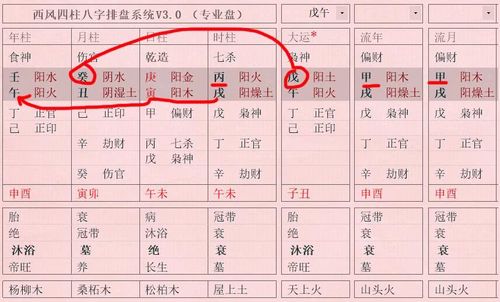 西风四柱八字排盘系统V3.0 （专业盘） 戊午
年柱 月柱 日柱 时柱 大运* 流年 流月
食神 伤官 乾造 七杀 枭神 偏财 偏财
壬 阳水 癸 阴水 庚 阳金 丙 阳火 戊 阳土 甲 阳木 甲 阳木
午 阳火 丑 阴湿土 寅 阳木 戌 阳燥土 午 阳火 戌 阳燥土 戌 阳燥土
丁 正官 己 正印 甲 偏财 戊 枭神 丁 正官 戊 枭神 戊 枭神
己 正印 己 正印
辛 劫财 丙 七杀 辛 劫财 辛 劫财 辛 劫财
戊 枭神
癸 伤官 丁 正官 丁 正官 丁 正官
申酉 寅卯 午未 午未 子丑 申酉 申酉
胎 衰 病 冠带 胎 冠带 冠带
绝 冠带 沐浴 衰 绝 衰 衰
沐浴 墓 绝 衰 沐浴 衰 衰
帝旺 养 长生 墓 帝旺 墓 墓
杨柳木 桑柘木 松柏木 屋上土 天上火 山头火 山头火